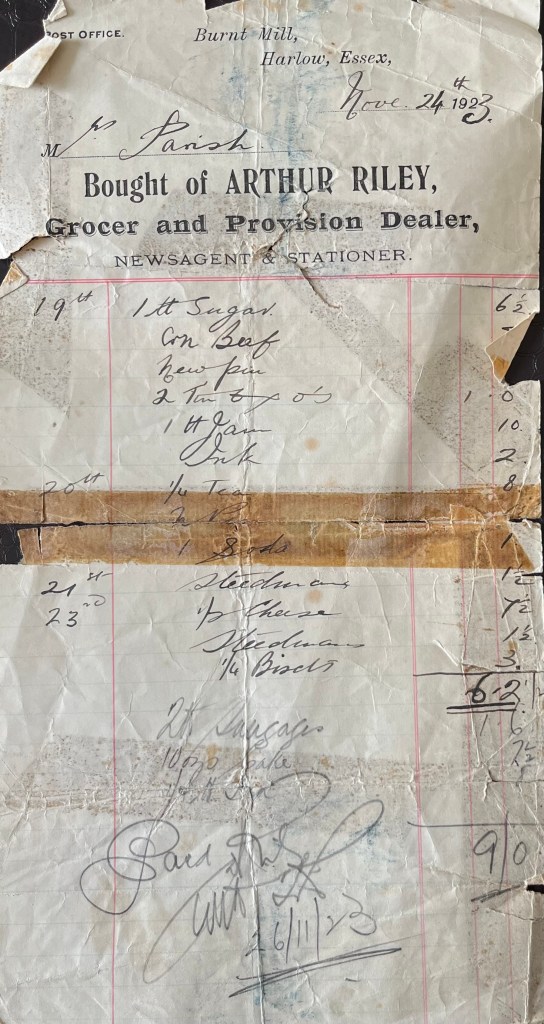 POST OFFICE.
Burnt Mill,
Harlow, Essex,
Nove. 24th 1923.
Mrs Parish
Bought of ARTHUR RILEY,
Grocer and Provision Dealer,
NEWSAGENT & STATIONER.
19th 1 lb Sugar 6½
Corn Beef
2 1 0
1 lb Jam 10.
Ink 2
20th ¼ Tea 8
2
1 Soda 1
21st Steedmans 1½
23rd Cheese 7½
Steedmans 1½
¼ Biscts 3.
6-2
2 lb Sausages 1 6
9/0
Paid
26/11/23